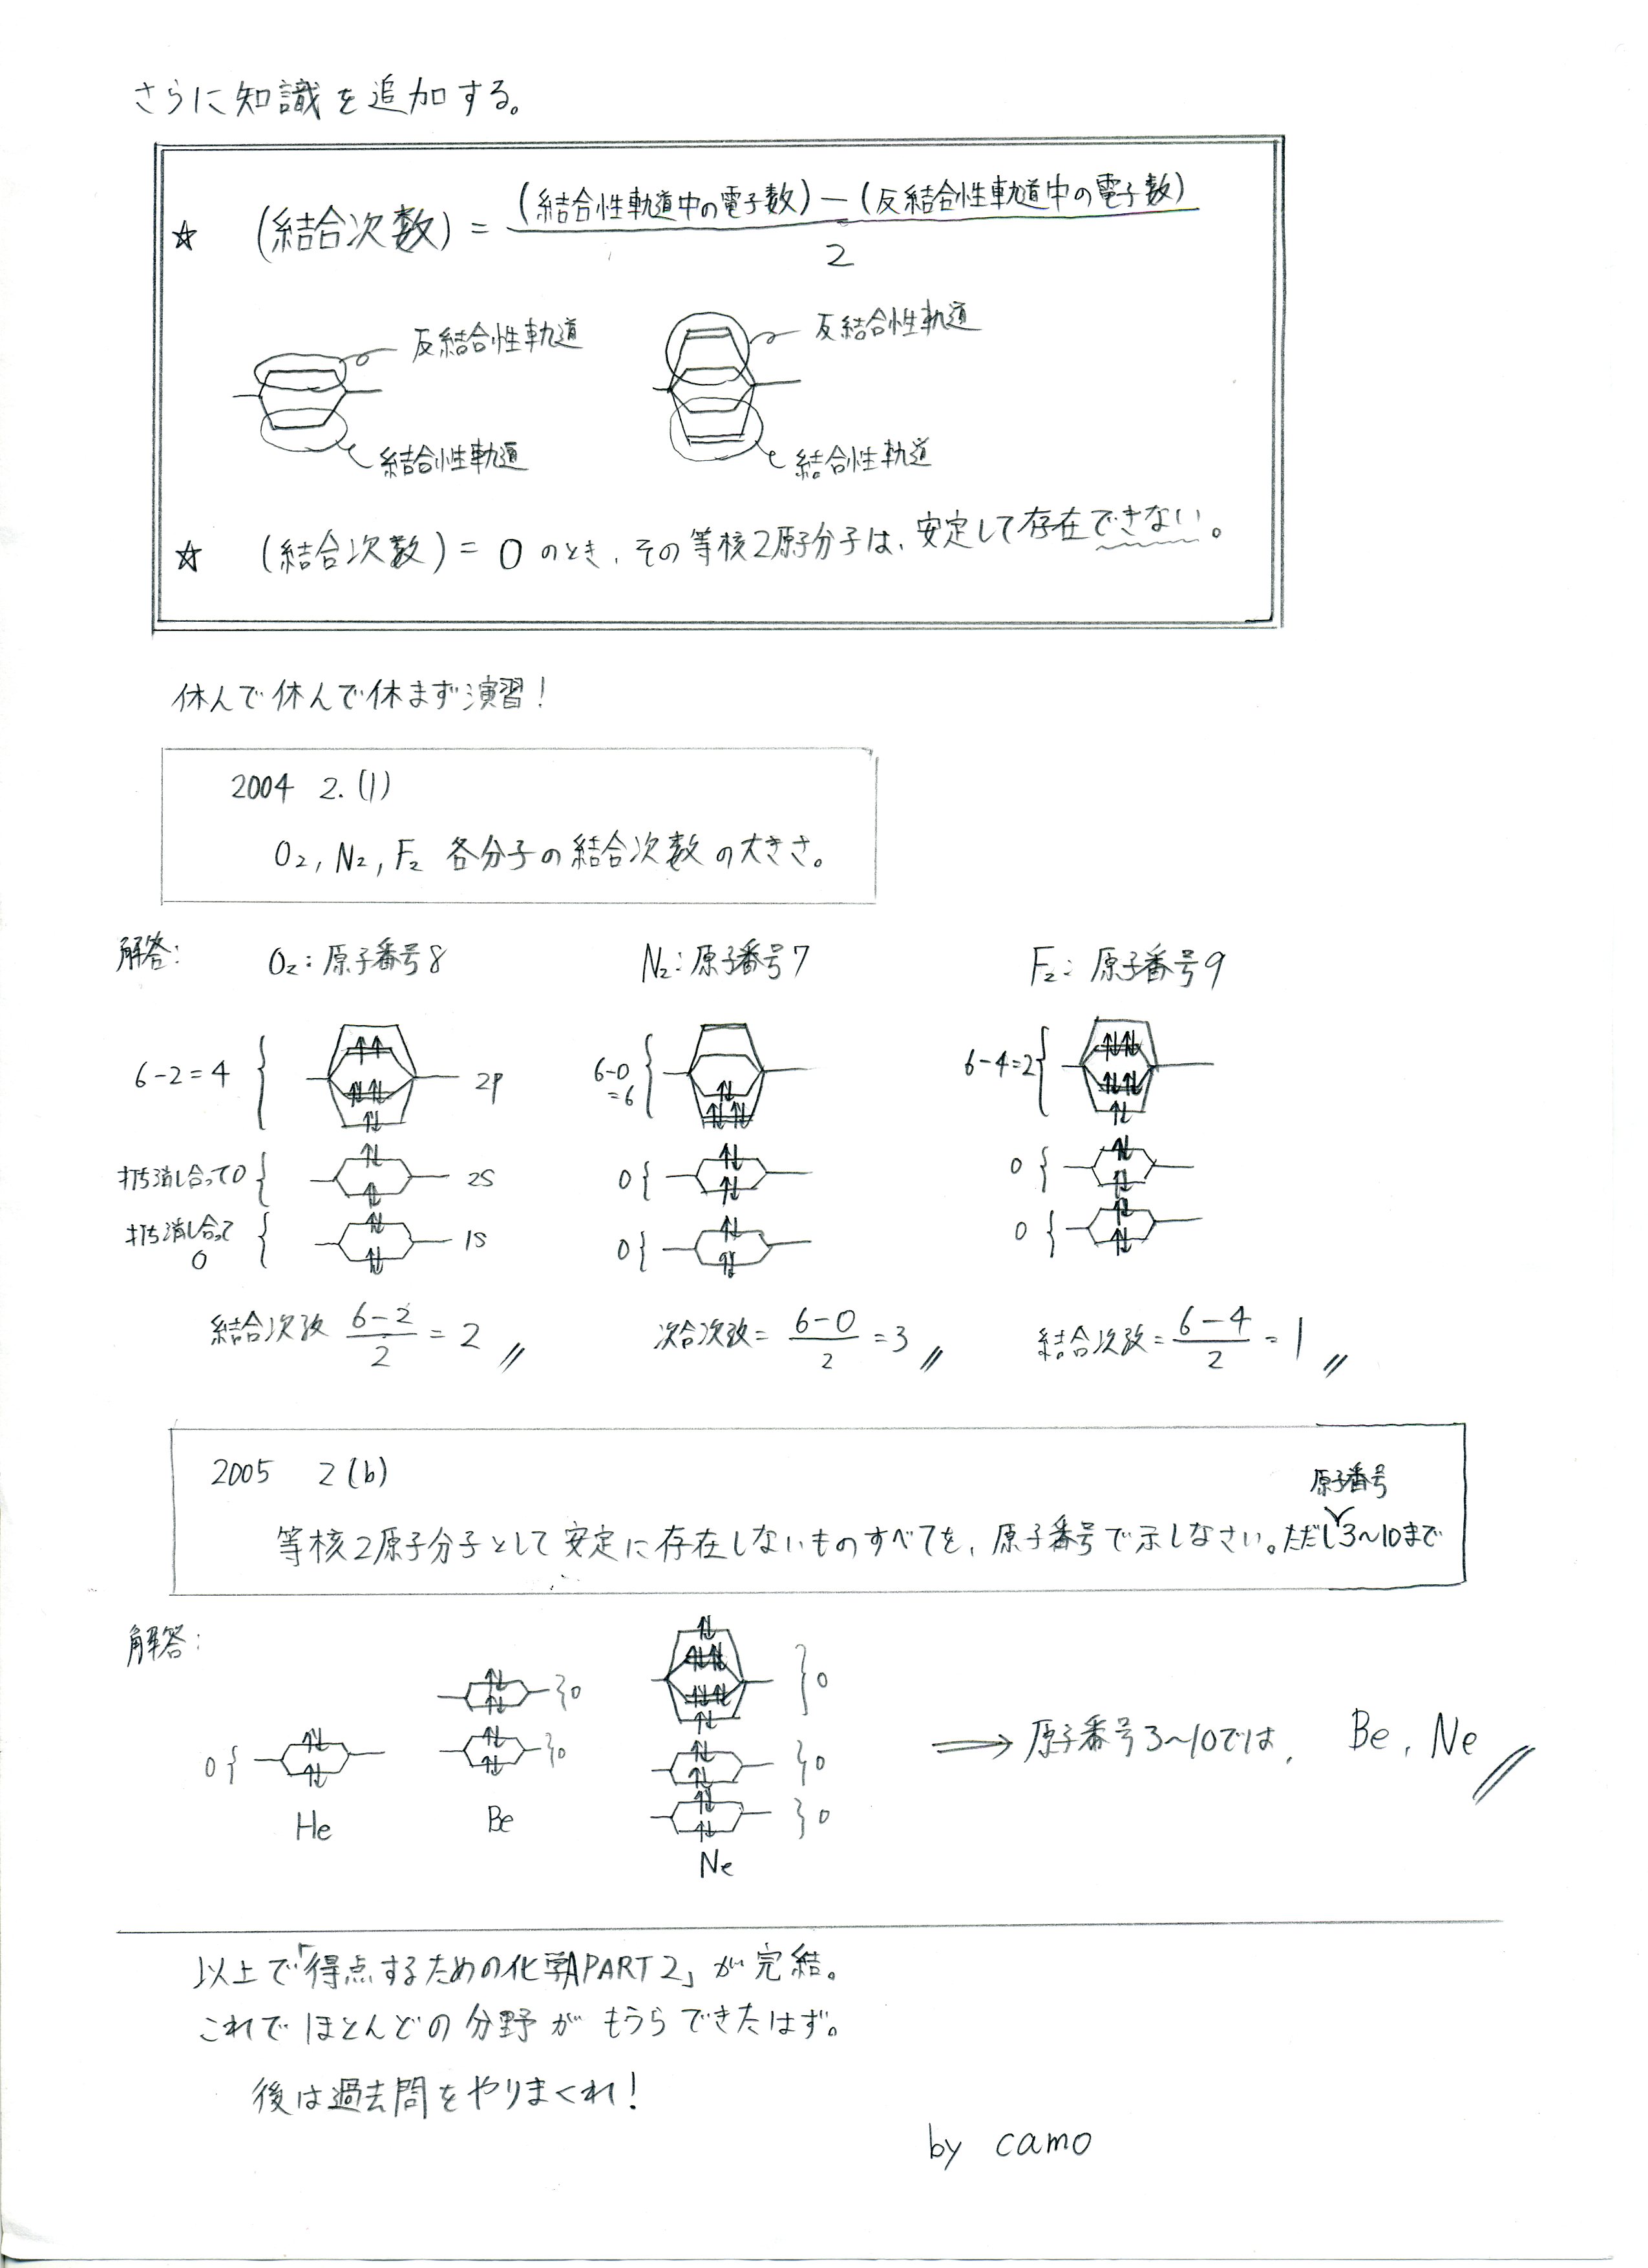 さらに知識を追加する。
☆ (結合次数) = (結合性軌道中の電子数) − (反結合性軌道中の電子数) / 2
反結合性軌道 反結合性軌道
結合性軌道 結合性軌道
☆ (結合次数) = 0 のとき、その等核2原子分子は、安定して存在できない。
休んで休んで休まず演習!
2004 2.(1)
O₂, N₂, F₂ 各分子の結合次数の大きさ。
解答: O₂:原子番号8 N₂:原子番号7 F₂:原子番号9
6−2=4 2p 6−0=6 6−4=2
打ち消し合って0 2s 0 0
打ち消し合って0 1s 0 0
結合次数 6−2 / 2 = 2 次合次数= 6−0 / 2 = 3 結合次数= 6−4 / 2 = 1
2005 2(b)
原子番号
等核2原子分子として安定に存在しないものすべてを、原子番号で示しなさい。ただし3~10まで
解答:
0 0 0
0 0 ⟹ 原子番号3~10では、 Be, Ne
0
He Be Ne
以上で「得点するための化学A PART2」が完結。
これでほとんどの分野がもうらできたはず。
後は過去問をやりまくれ!
by camo